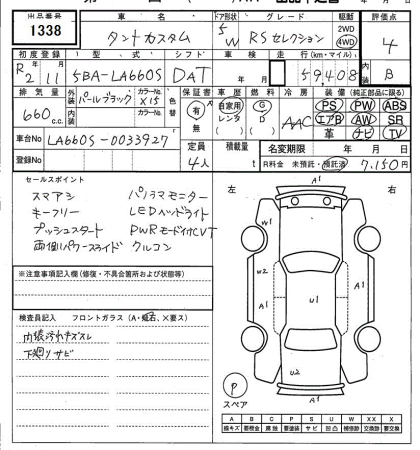 出品番号 車名 ドア形状 グレード 駆動 評価点
1338 タントカスタム 5 W RSセレクション 2WD 4WD 4
初度登録 型式 シフト 車検 走行(km・マイル) 内装
R2 11 5BA-LA660S DAT 年 月 59,408 B
排気量 外装 カラーNo. 色替 保証書 車歴 燃料 冷房 装備 (純正部品に限る)
660 c.c. パールブラック X15 有 無 自家用 レンタ G D AAC PS PW ABS
内装 カラーNo. エアB AW SR
革 ナビ TV
車台No LA660S-0033927 定員 積載量 名変期限 年 月 日
登録No 4人 t R料金 未預託・預託済 7,150円
セールスポイント
スマアシ パノラマモニター
キーフリー LEDヘッドライト
プッシュスタート PWRモード付CVT
両側パワースライド クルコン
※注意事項記入欄(修復・不具合箇所および状態等)
検査員記入 フロントガラス(A・飛石、×要ス)
内装汚れキズスレ
下廻りサビ
左 右
A1
W1
W2
A1
U1
A1
U2
A1
P
スペア
A B C P S U W X XX
線キズ 要板金 腐蝕 要塗装 サビ 凹凸 補修跡 要交換 交換済